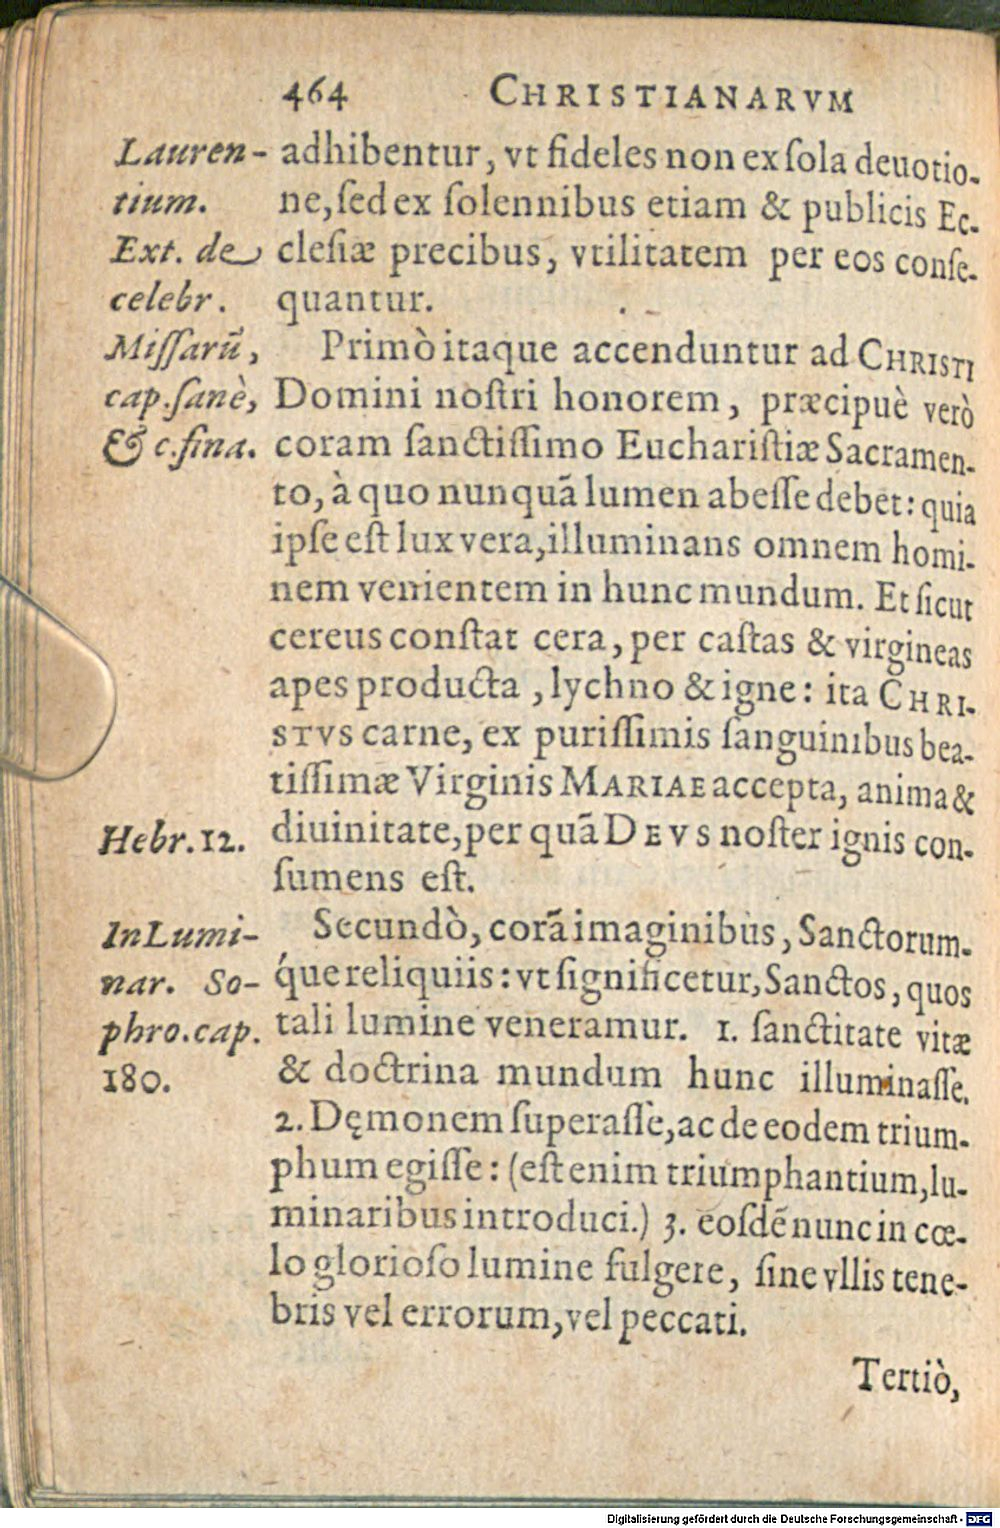 464 CHRISTIANARVM
Lauren-
tium.
Ext. de
celebr.
Missarũ,
cap.sanè,
& c.fina.
adhibentur, vt fideles non ex ſola deuotio-
ne, ſed ex ſolennibus etiam & publicis Ec-
cleſiæ precibus, vtilitatem per eos conſe-
quantur.
Primò itaque accenduntur ad CHRISTI
Domini noſtri honorem, præcipuè verò
coram ſanctiſſimo Euchariſtiæ Sacramen-
to, à quo nunquã lumen abeſſe debet: quia
ipſe eſt lux vera, illuminans omnem homi-
nem venientem in hunc mundum. Et ſicut
cereus conſtat cera, per caſtas & virgineas
apes producta, lychno & igne: ita CHRI-
STVS carne, ex puriſſimis ſanguinibus bea-
tiſſimæ Virginis MARIAE accepta, anima &
Hebr. 12.
diuinitate, per quã DEVS noſter ignis con-
ſumens eſt.
In Lumi-
nar. So-
phro. cap.
180.
Secundò, corã imaginibus, Sanctorum-
que reliquiis: vt ſignificetur, Sanctos, quos
tali lumine veneramur. 1. ſanctitate vitæ
& doctrina mundum hunc illuminaſſe.
2. Dęmonem ſuperaſſe, ac de eodem trium-
phum egiſſe: (eſt enim triumphantium, lu-
minaribus introduci.) 3. eoſdẽ nunc in cœ-
lo glorioſo lumine fulgere, ſine vllis tene-
bris vel errorum, vel peccati.
Tertiò,
Digitalisierung gefördert durch die Deutsche Forschungsgemeinschaft - DFG